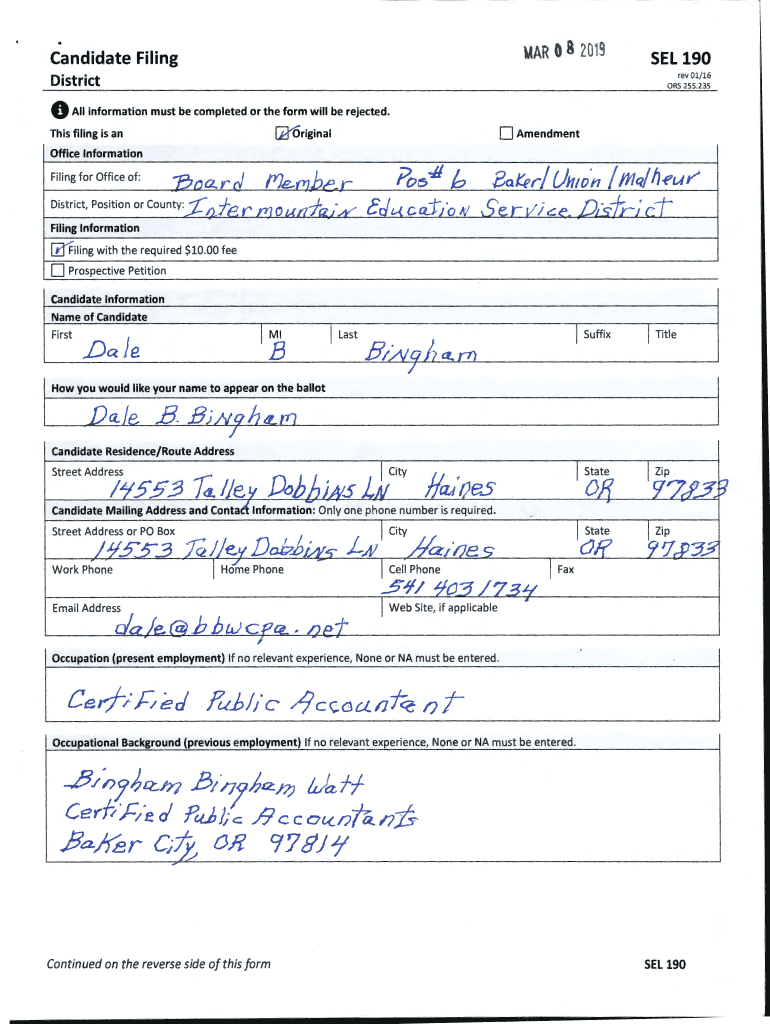 Candidate Filing
MAR 08 2019
SEL 190
District
rev 01/16
ORS 255.235
i All information must be completed or the form will be rejected.
This filing is an ☑ Original ☐ Amendment
Office Information
Filing for Office of: Board Member Pos# 6 Baker/Union/Malheur
District, Position or County: Intermountain Education Service District
Filing Information
☑ Filing with the required $10.00 fee
☐ Prospective Petition
Candidate Information
Name of Candidate
First MI Last Suffix Title
Dale B Bingham
How you would like your name to appear on the ballot
Dale B. Bingham
Candidate Residence/Route Address
Street Address City State Zip
14553 Talley Dobbins LN Haines OR 97833
Candidate Mailing Address and Contact Information: Only one phone number is required.
Street Address or PO Box City State Zip
14553 Talley Dobbins LN Haines OR 97833
Work Phone Home Phone Cell Phone Fax
541 403 1734
Email Address Web Site, if applicable
dale@bbwcpa.net
Occupation (present employment) If no relevant experience, None or NA must be entered.
Certified Public Accountant
Occupational Background (previous employment) If no relevant experience, None or NA must be entered.
Bingham Bingham Watt
Certified Public Accountants
Baker City, OR 97814
Continued on the reverse side of this form
SEL 190